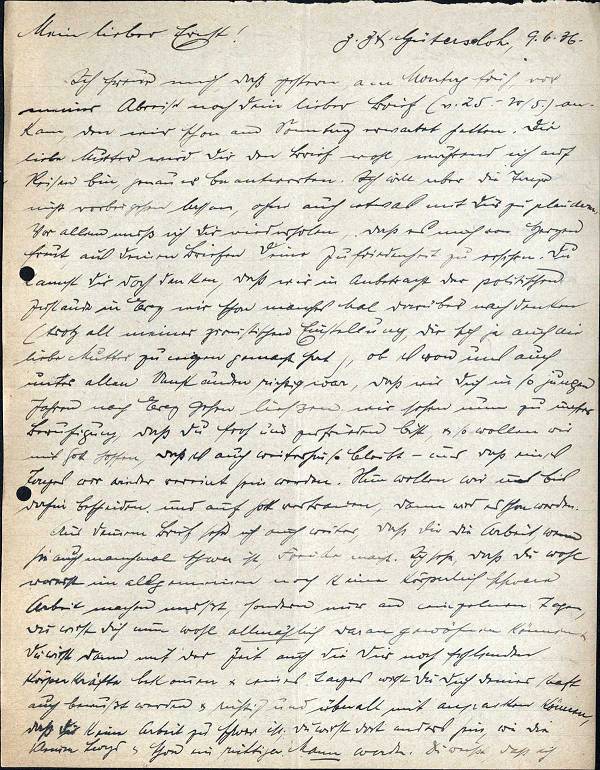 Mein lieber Ernst!
z. Zt. Gütersloh, 9.6.36.
Ich freue mich, daß gestern, am Montag früh, vor
meiner Abreise noch dein lieber Brief (v. 25.- /5.) an-
kam, den wir schon am Sonntag erwartet hatten. Die
liebe Mutter wird Dir den Brief wohl, während ich auf
Reisen bin, genauer beantworten. Ich will aber die
nicht vorbeigehen lassen, ohne auch etwas mit Dir zu plaudern.
Vor allem muß ich Dir wiederholen, daß es mich von Herzen
freut, aus deinen Briefen Deine Zufriedenheit zu ersehen. Du
kannst Dir doch denken, daß wir in Anbetracht der politischen
Zustände in Erez wir schon manches Mal darüber nachdenken
(trotz all meiner zionistischen Einstellung, die sich ja auch die
liebe Mutter zu eigen gemacht hat), ob es von uns auch
unter allen Umständen richtig war, daß wir Dich in so jungen
Jahren nach Erez gehen ließen. wir sehen nun zu unserer
Beruhigung, daß Du froh und zufrieden bist, & so wollen wir
mit Gott hoffen, daß es auch weiterhin so bleibt – und daß eines
Tages wir wieder vereint sein werden. Nun wollen wir uns bis
dahin bescheiden, und auf Gott vertrauen, dann wird es schon werden.
Aus deinem Brief sehe ich auch weiter, daß dir die Arbeit, wenn
sie auch manchmal schwer ist, Freude macht. Ich hoffe, daß Du wohl
vorerst im allgemeinen noch keine körperlich schwere
Arbeit machen mußt, sondern nur an einzelnen Tagen,
Du wirst Dich nun wohl allmählich daran gewöhnen können
Du wirst dann mit der Zeit auch die Dir noch fehlenden
Körperkräfte bekommen & eines Tages wirst Du Dich deiner Kraft
auch bewußt werden & und überall mit anpacken können,
daß Dir keine Arbeit zu schwer ist. Du wirst dort anders sein, wie die
& schon ein richtiger Mann werden. Du weißt, daß ich